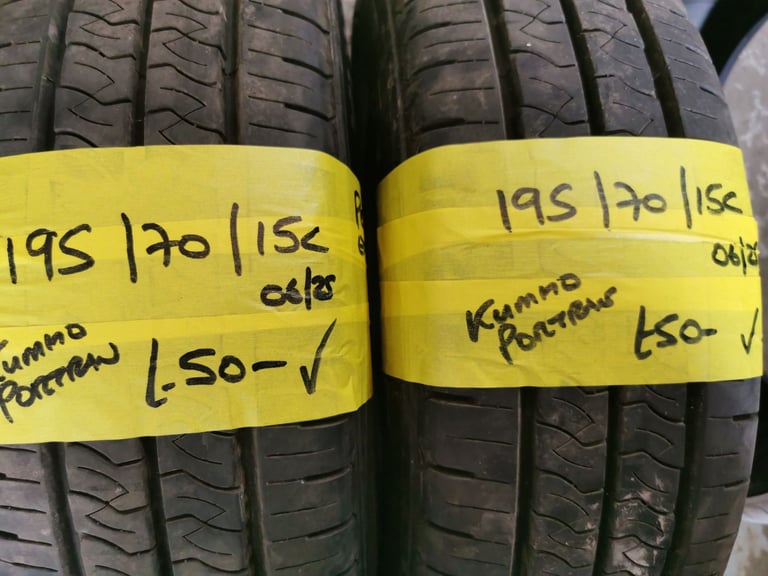 195/70/15C
06/25
KUMHO
PORTRAN
£50- ✓
195/70/15C
06/25
KUMHO
PORTRAN
£50- ✓